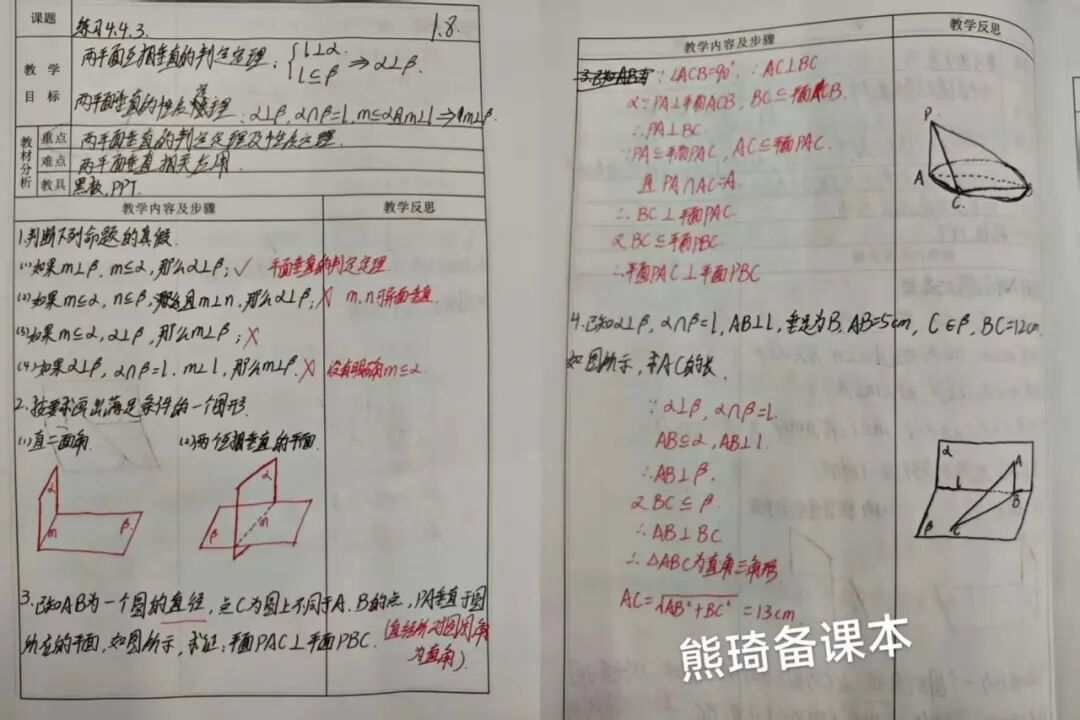 课题
练习4.4.3.
1.8.
教学目标
两平面互相垂直的判定定理:{l⊥α. l⊆β ⇒ α⊥β.
两平面垂直的性质定理:α⊥β, α∩β=l, m⊆α且m⊥l⇒m⊥β.
教材分析
重点
两平面垂直的判定定理及性质定理.
难点
两平面垂直相关应用.
教具
黑板,PPT.
教学内容及步骤
教学反思
1.判断下列命题的真假.
(1)如果m⊥β, m⊆α, 那么α⊥β; ✓ 平面垂直的判定定理.
(2)如果m⊆α, n⊆β, 且m⊥n, 那么α⊥β; ╳ m、n可异面垂直
(3)如果m⊆α, α⊥β, 那么m⊥β; ╳
(4)如果α⊥β, α∩β=l, m⊥l, 那么m⊥β. ╳ 没有明确m⊆α.
2.按要求画出满足条件的一个图形.
(1)直二面角.
(2)两个互相垂直的平面.
α
β
m
α
β
m
3.已知AB为一个圆的直径, 点C为圆上不同于A、B的点, PA垂直于圆
所在的平面, 如图所示, 求证:平面PAC⊥平面PBC. (直径所对圆周角
为直角).
教学内容及步骤
教学反思
∵∠ACB=90° ∴AC⊥BC
又∵PA⊥平面ACB, BC⊆平面ACB.
∴PA⊥BC.
∵PA⊆平面PAC, AC⊆平面PAC.
且 PA∩AC=A.
∴BC⊥平面PAC.
又BC⊆平面PBC.
∴平面PAC⊥平面PBC
P
A
B
C
4.已知α⊥β, α∩β=l, AB⊥l, 垂足为B, AB=5cm, C∈β, BC=12cm,
如图所示, 求AC的长.
∵α⊥β, α∩β=l.
AB⊆α, AB⊥l.
∴AB⊥β.
又BC⊆β.
∴AB⊥BC.
∴△ABC为直角三角形.
AC=√(AB²+BC²)=13cm.
α
A
l
B
β
C
熊琦备课本